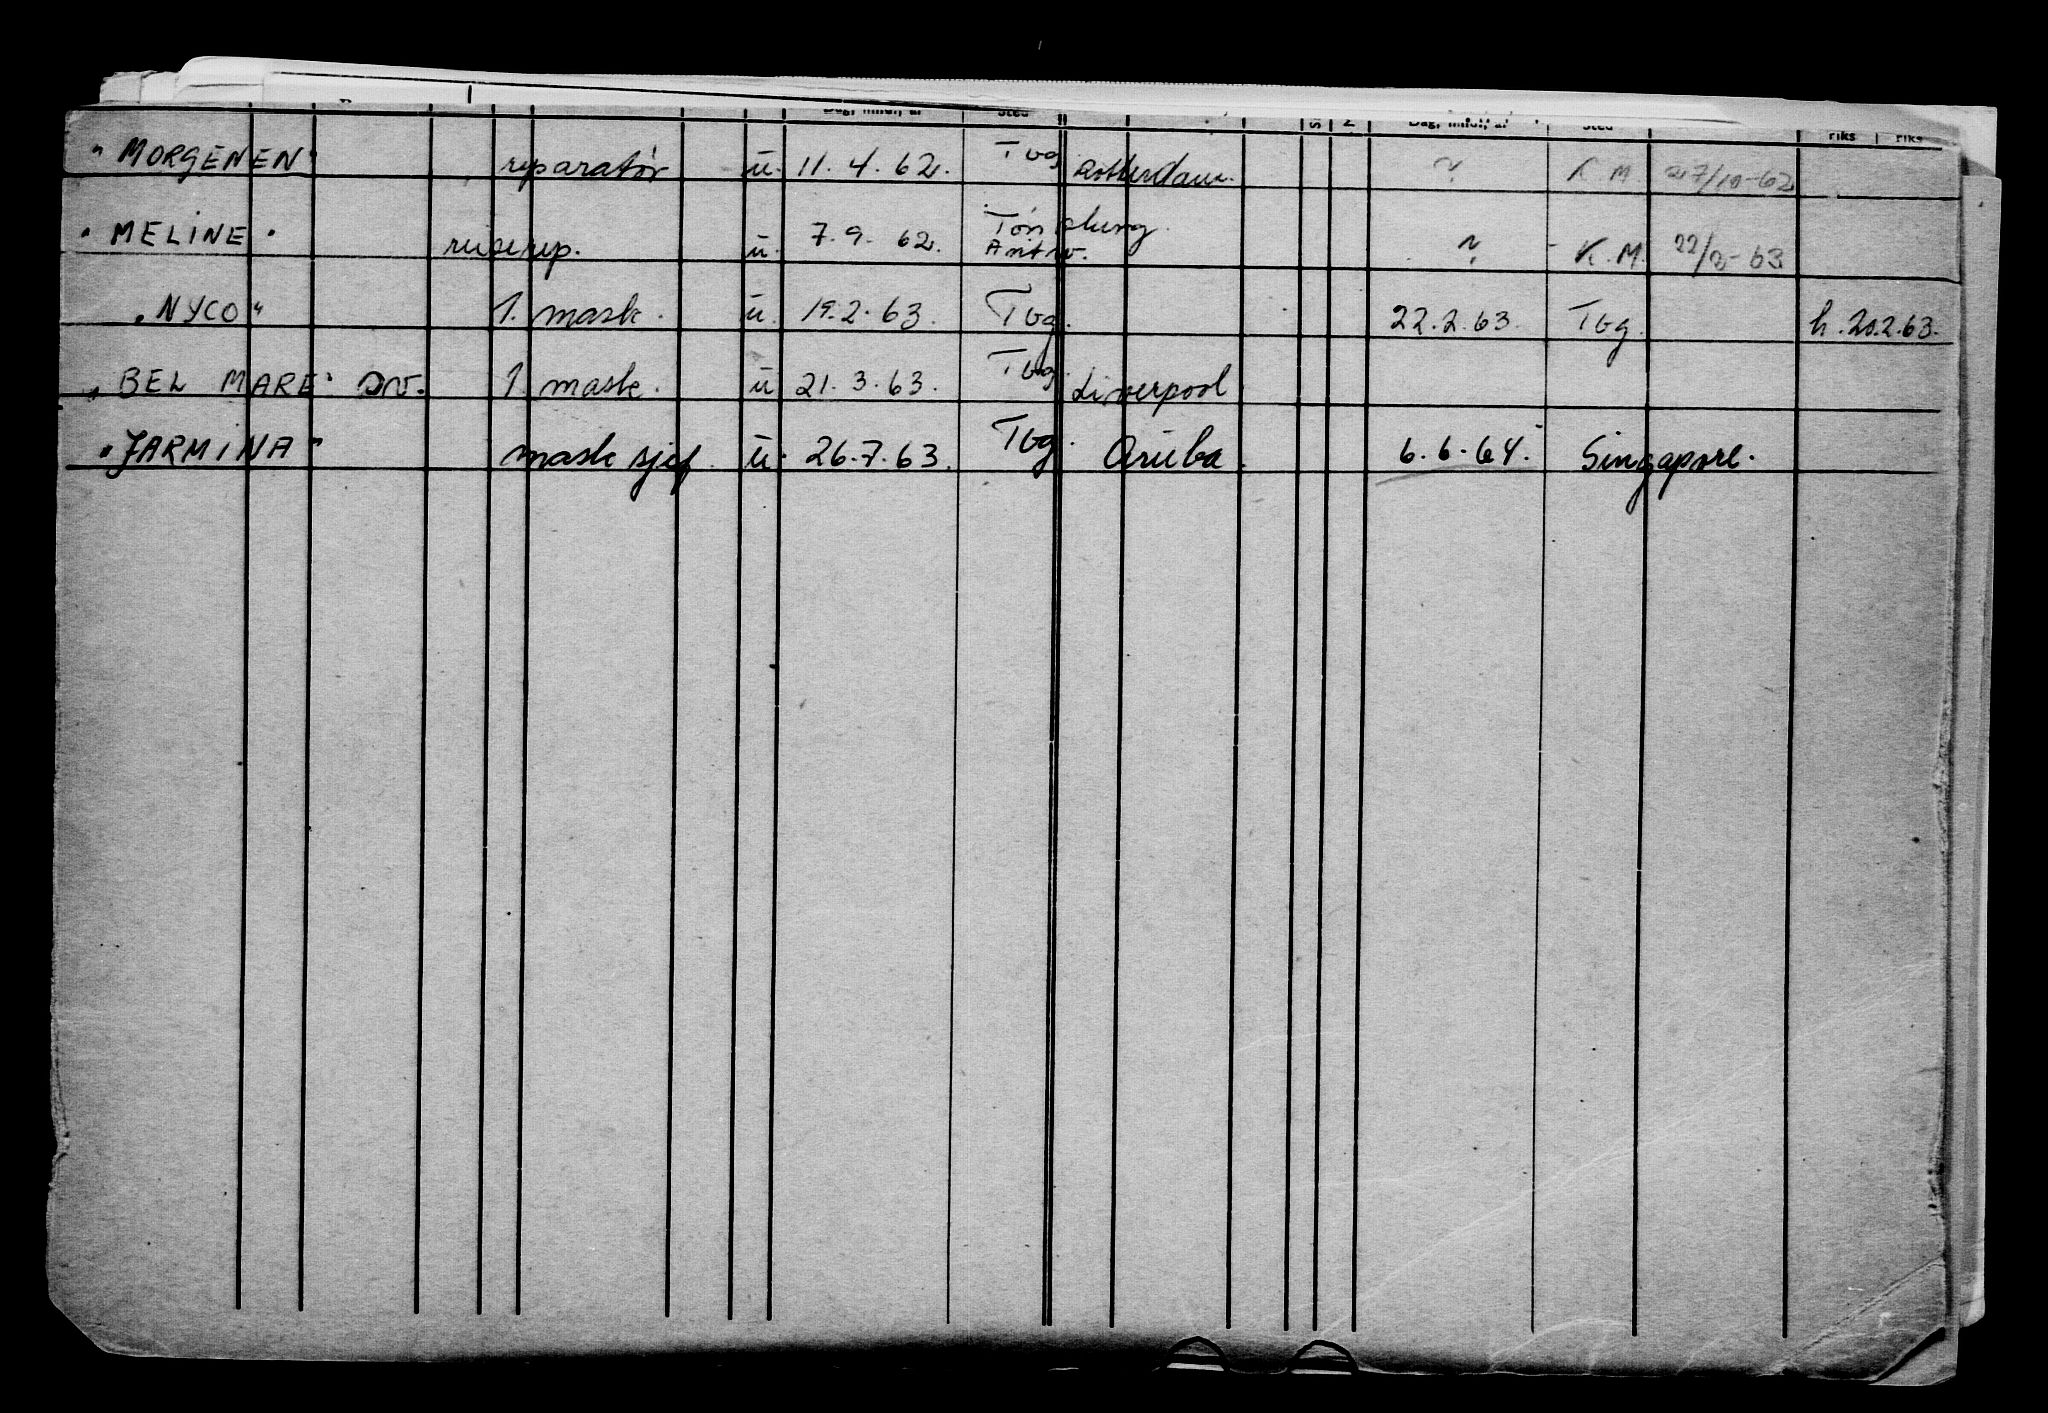 Sted S N Sted riks riks
"MORGENEN" reparatør u. 11.4.62. Tbg Rotterdam. ? K M. 27/10-62
"MELINE" u. 7.9.62. Tønsberg Antw. ? - K.M. 22/3-63
"NYCO" 1. mask. u. 19.2.63. Tbg. 22.2.63. Tbg. h.20.2.63.
"BEL MARE" 1. mask. u 21.3.63. Tbg. Liverpool
"JARMINA" mask sjef. u. 26.7.63. Tbg. Aruba. 6.6.64. Singapore.